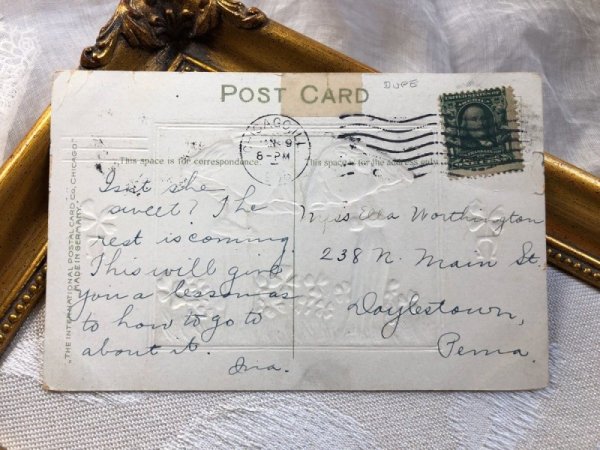 POST CARD
DUPE
CHICAGO, ILL
8-PM
This space is for correspondence.
This space for the address only
THE INTERNATIONAL POSTAL CARD CO., CHICAGO
MADE IN GERMANY
Isn't she
sweet? The
rest is coming.
This will give
you a lesson as
to how to go to
about it.
Ina.
Miss Ella Worthington
238 N. Main St.
Doylestown,
Penna.